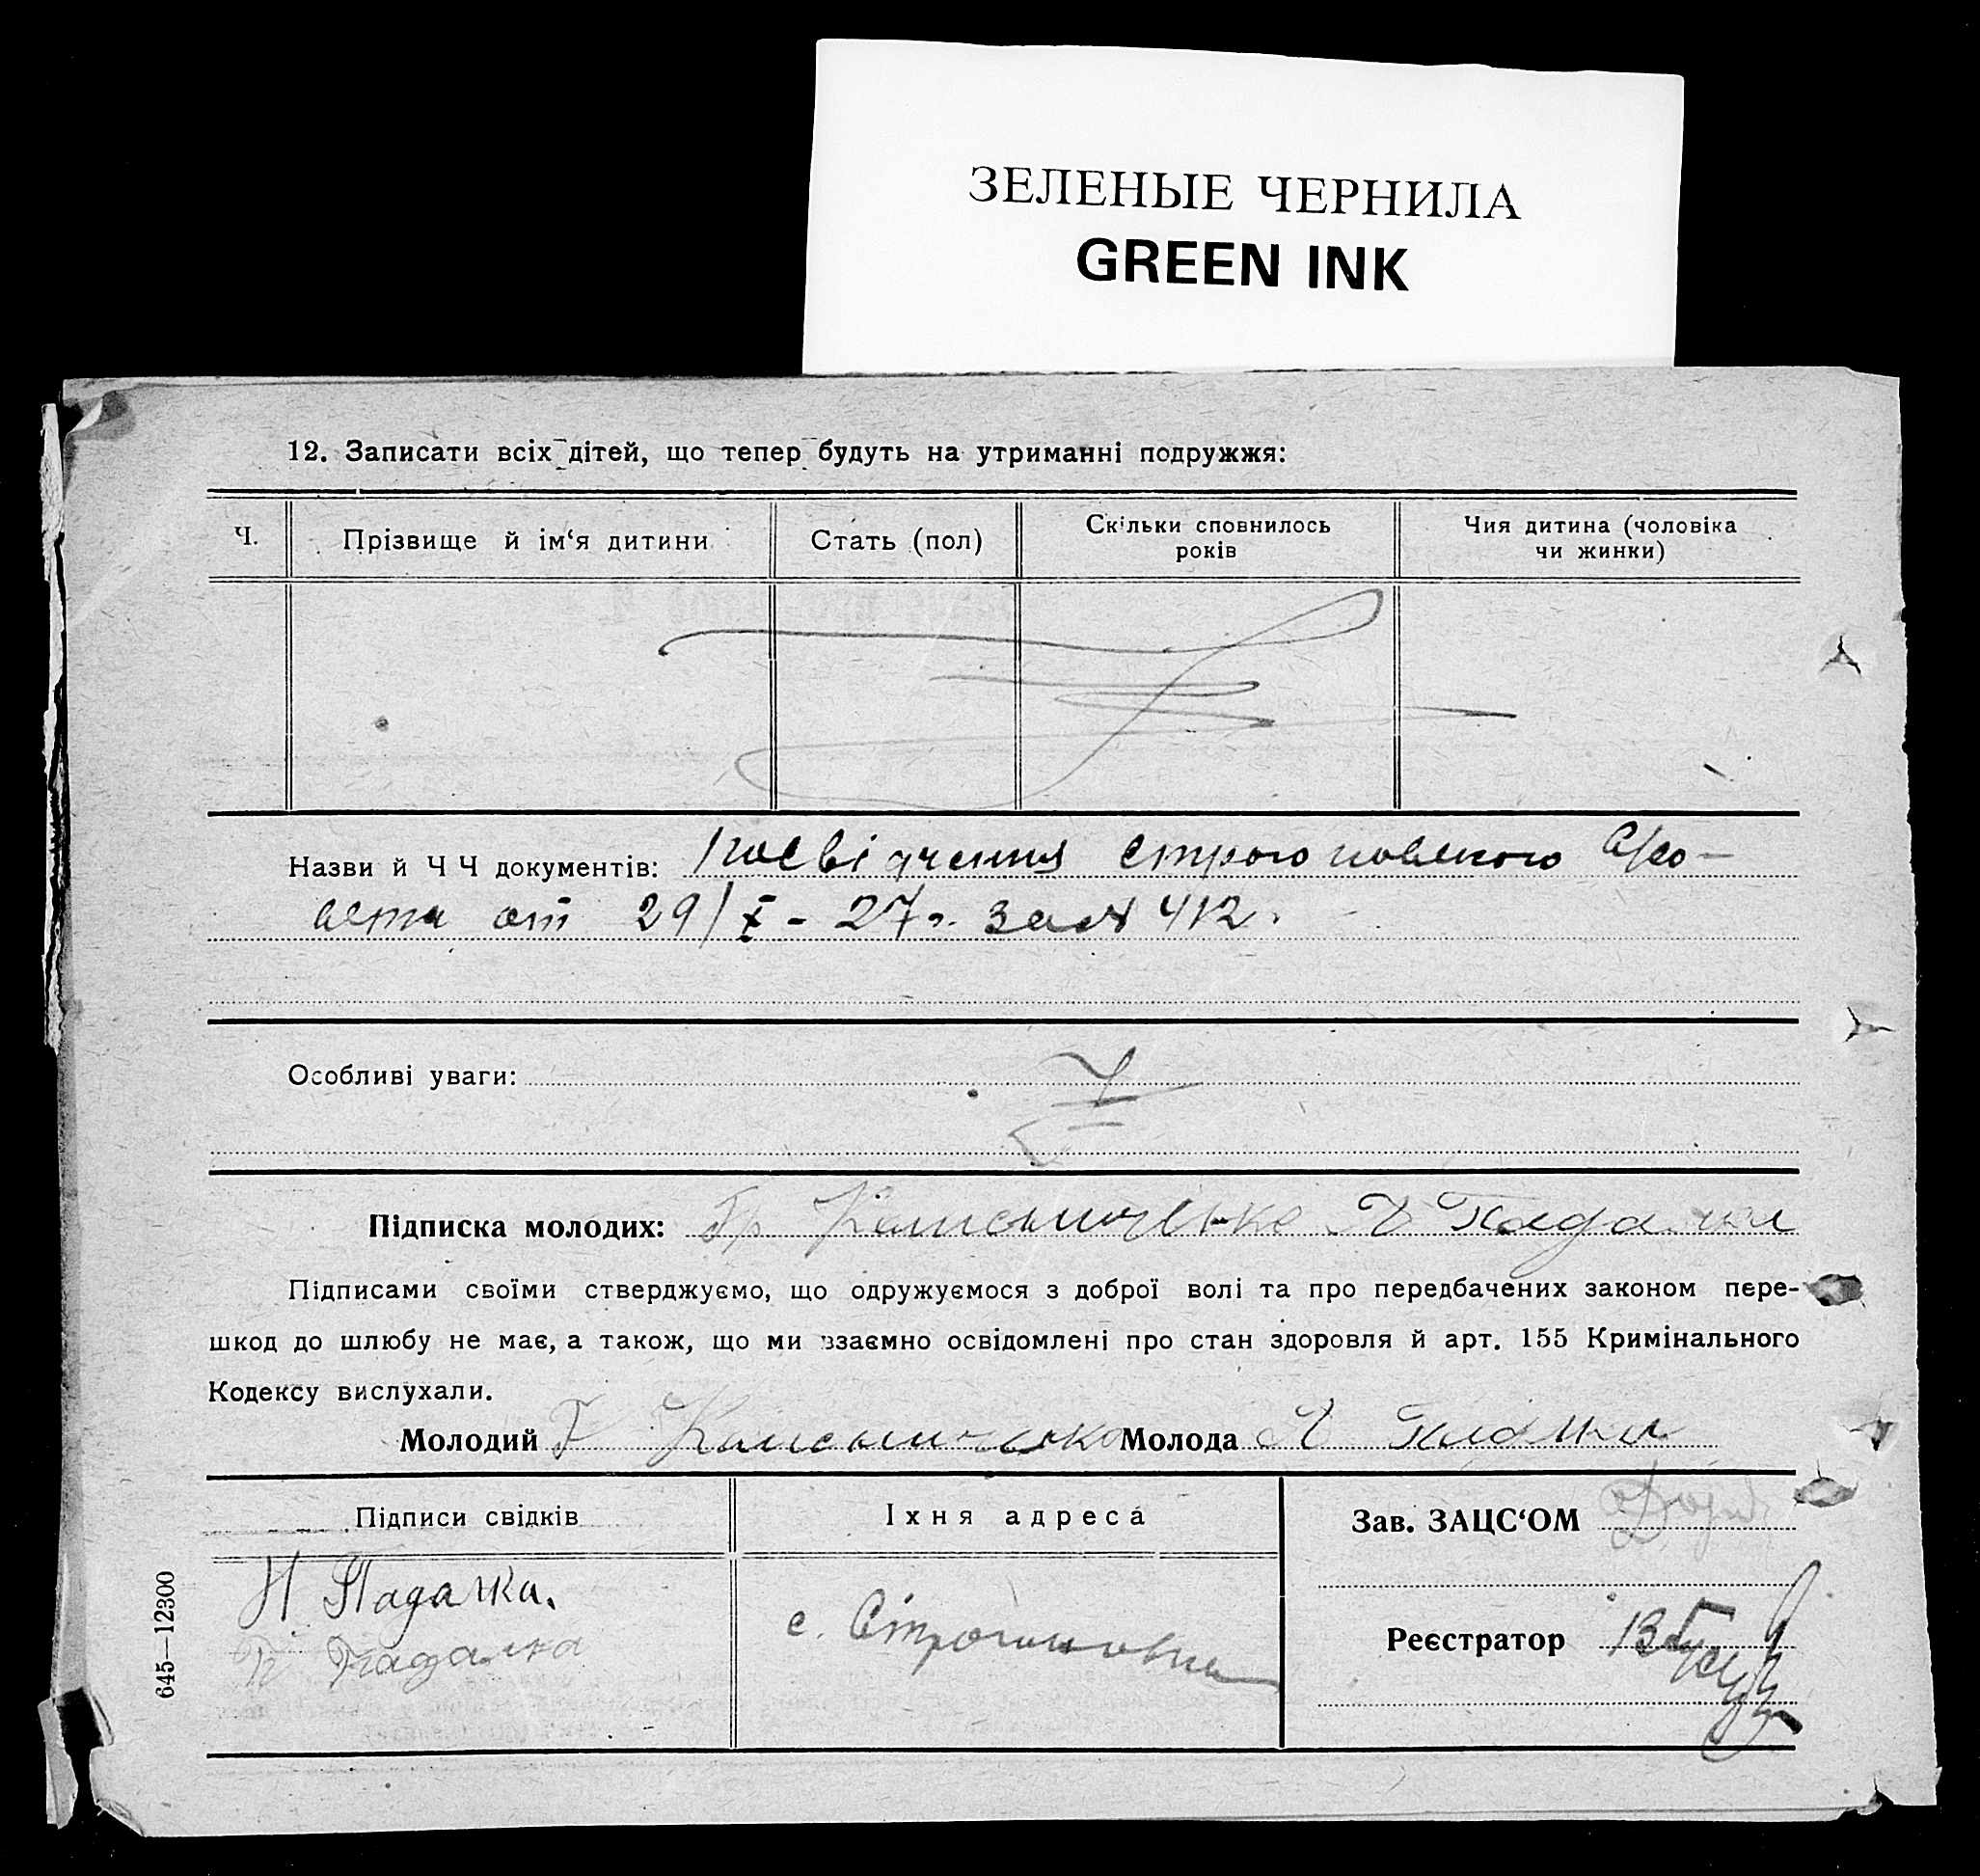 ЗЕЛЕНЫЕ ЧЕРНИЛА
GREEN INK
12. Записати всіх дітей, що тепер будуть на утриманні подружжя:
Ч.
Прізвище й ім‘я дитини
Стать (пол)
Скільки сповнилось
років
Чия дитина (чоловіка
чи жинки)
Назви й Ч Ч документів: посвідчення
от 29/X - 27 г. за № 412.
Особливі уваги:
Підписка молодих: Гр
Підписами своїми стверджуємо, що одружуємося з доброї волі та про передбачених законом пере-
шкод до шлюбу не має, а також, що ми взаємно освідомлені про стан здоровля й арт. 155 Кримінального
Кодексу вислухали.
Молодий Г Молода
Підписи свідків
Іхня адреса
Зав. ЗАЦС‘ОМ
Н Падалка.
Падалка
с. Строгановка
Реєстратор
645—12300